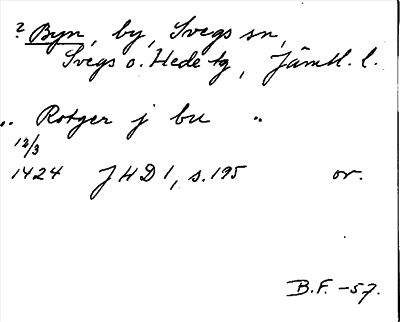 ? Byn, by, Svegs sn,
Svegs o. Hede tg, Jämtl. l.
„ Rotger j bu "
12/3
1424 JHD 1, s. 195 or.
B.F. -57.